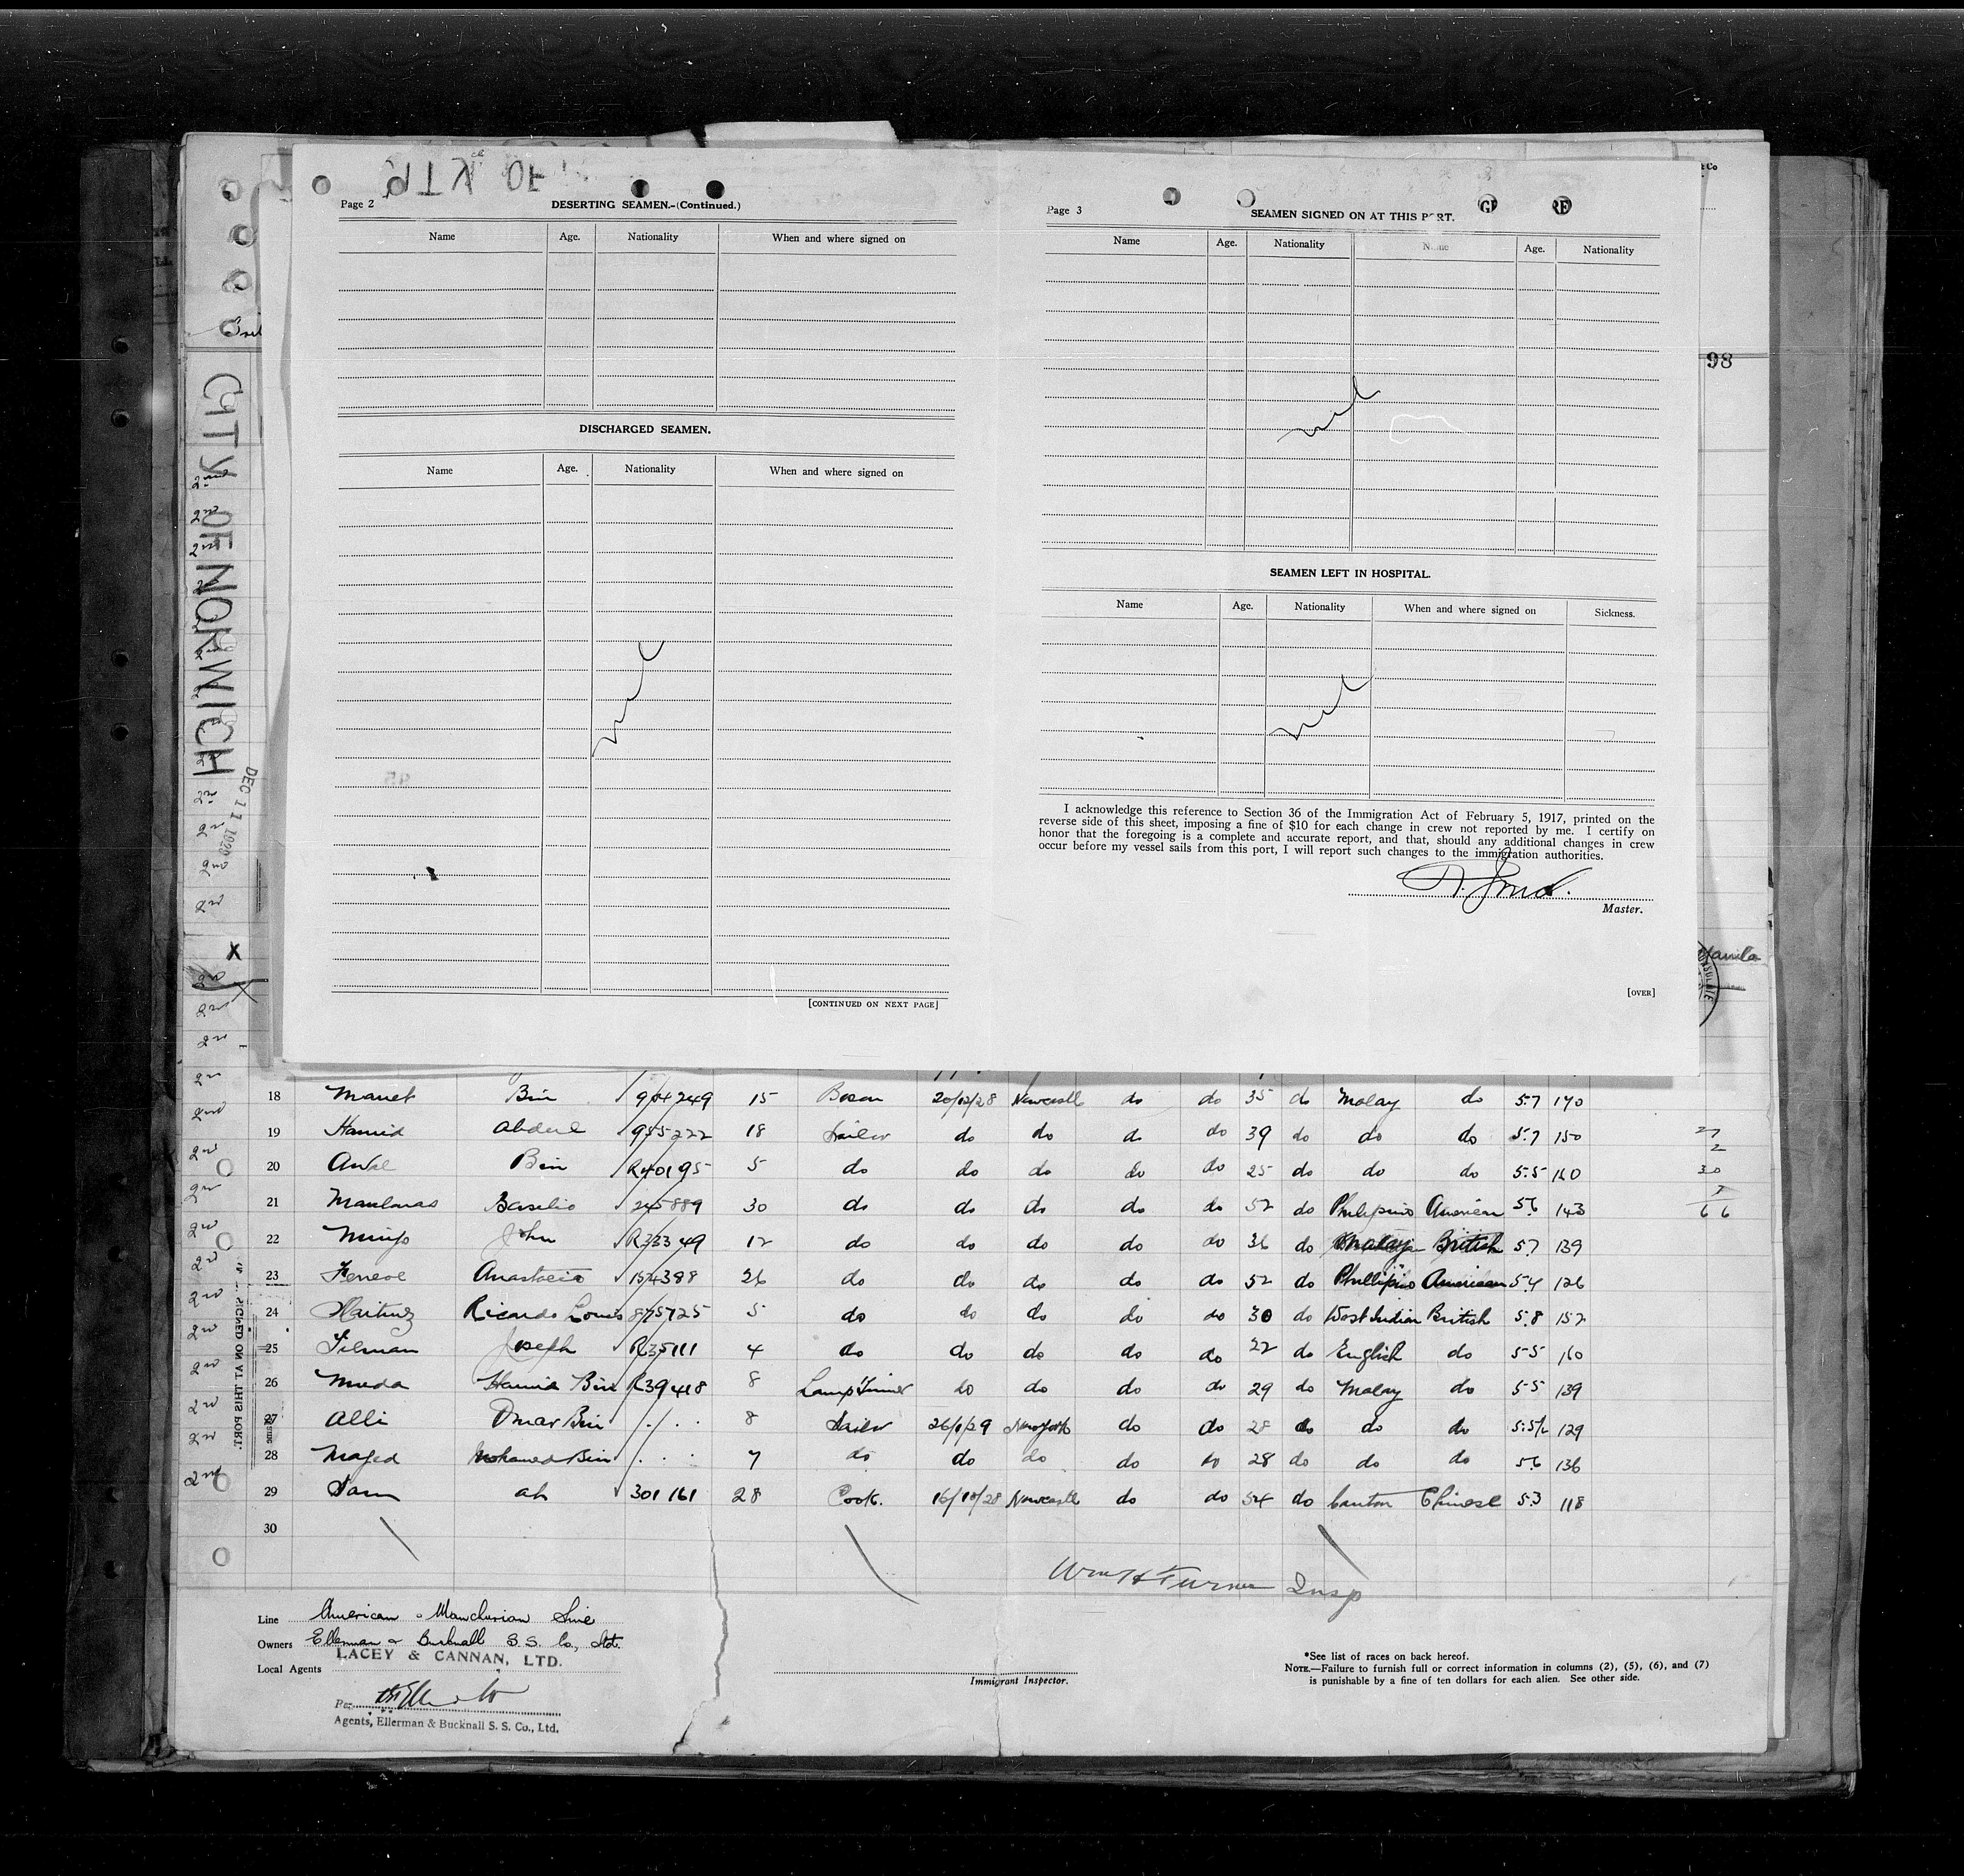 Page 2
DESERTING SEAMEN.-(Continued.)
Name Age. Nationality When and where signed on
DISCHARGED SEAMEN.
Name Age. Nationality When and where signed on
nil
[CONTINUED ON NEXT PAGE]
Page 3
SEAMEN SIGNED ON AT THIS PORT.
Name Age. Nationality Name Age. Nationality
nil
SEAMEN LEFT IN HOSPITAL.
Name Age. Nationality When and where signed on Sickness.
nil
I acknowledge this reference to Section 36 of the Immigration Act of February 5, 1917, printed on the
reverse side of this sheet, imposing a fine of $10 for each change in crew not reported by me. I certify on
honor that the foregoing is a complete and accurate report, and that, should any additional changes in crew
occur before my vessel sails from this port, I will report such changes to the immigration authorities.
Master.
[OVER]
98
Manila
CITY OF NORWICH
DEC 11 1929
18 Manet Bin 904249 15 Bosun 20/10/28 Newcastle do do 35 do Malay do 5.7 170
19 Hamid Abdul 955222 18 Sailor do do do do 39 do do do 5.7 150
20 Awal Bin R40195 5 do do do do do 25 do do do 5.5 160
21 Basilio 245889 30 do do do do do 52 do Philipino American 5.6 143
22 John R33349 12 do do do do do 36 do Malay British 5.7 139
23 Anastacio 154398 26 do do do do do 52 do Phillipino American 5.4 126
24 Ricardo Louis 875725 5 do do do do do 30 do West Indian British 5.8 152
25 Joseph R35111 4 do do do do do 22 do English do 5.5 160
26 Muda Hamid Bin R39418 8 Lamp Trimer do do do do 29 do Malay do 5.5 139
27 Alli Omar Bin 8 Sailor 26/1/29 New York do do 28 do do do 5.5½ 129
28 Majed Mohamed Bin 7 do do do do do 28 do do do 5.6 136
29 ah 301161 28 Cook. 16/10/28 Newcastle do do 54 do Canton Chinese 5.3 118
30
Wm H Turner Insp
Line American & Manchurian Line
Owners Ellerman & Bucknall S.S. Co., Ltd.
LACEY & CANNAN, LTD.
Local Agents
Per
Agents, Ellerman & Bucknall S. S. Co., Ltd.
Immigrant Inspector.
*See list of races on back hereof.
NOTE.—Failure to furnish full or correct information in columns (2), (5), (6), and (7)
is punishable by a fine of ten dollars for each alien. See other side.